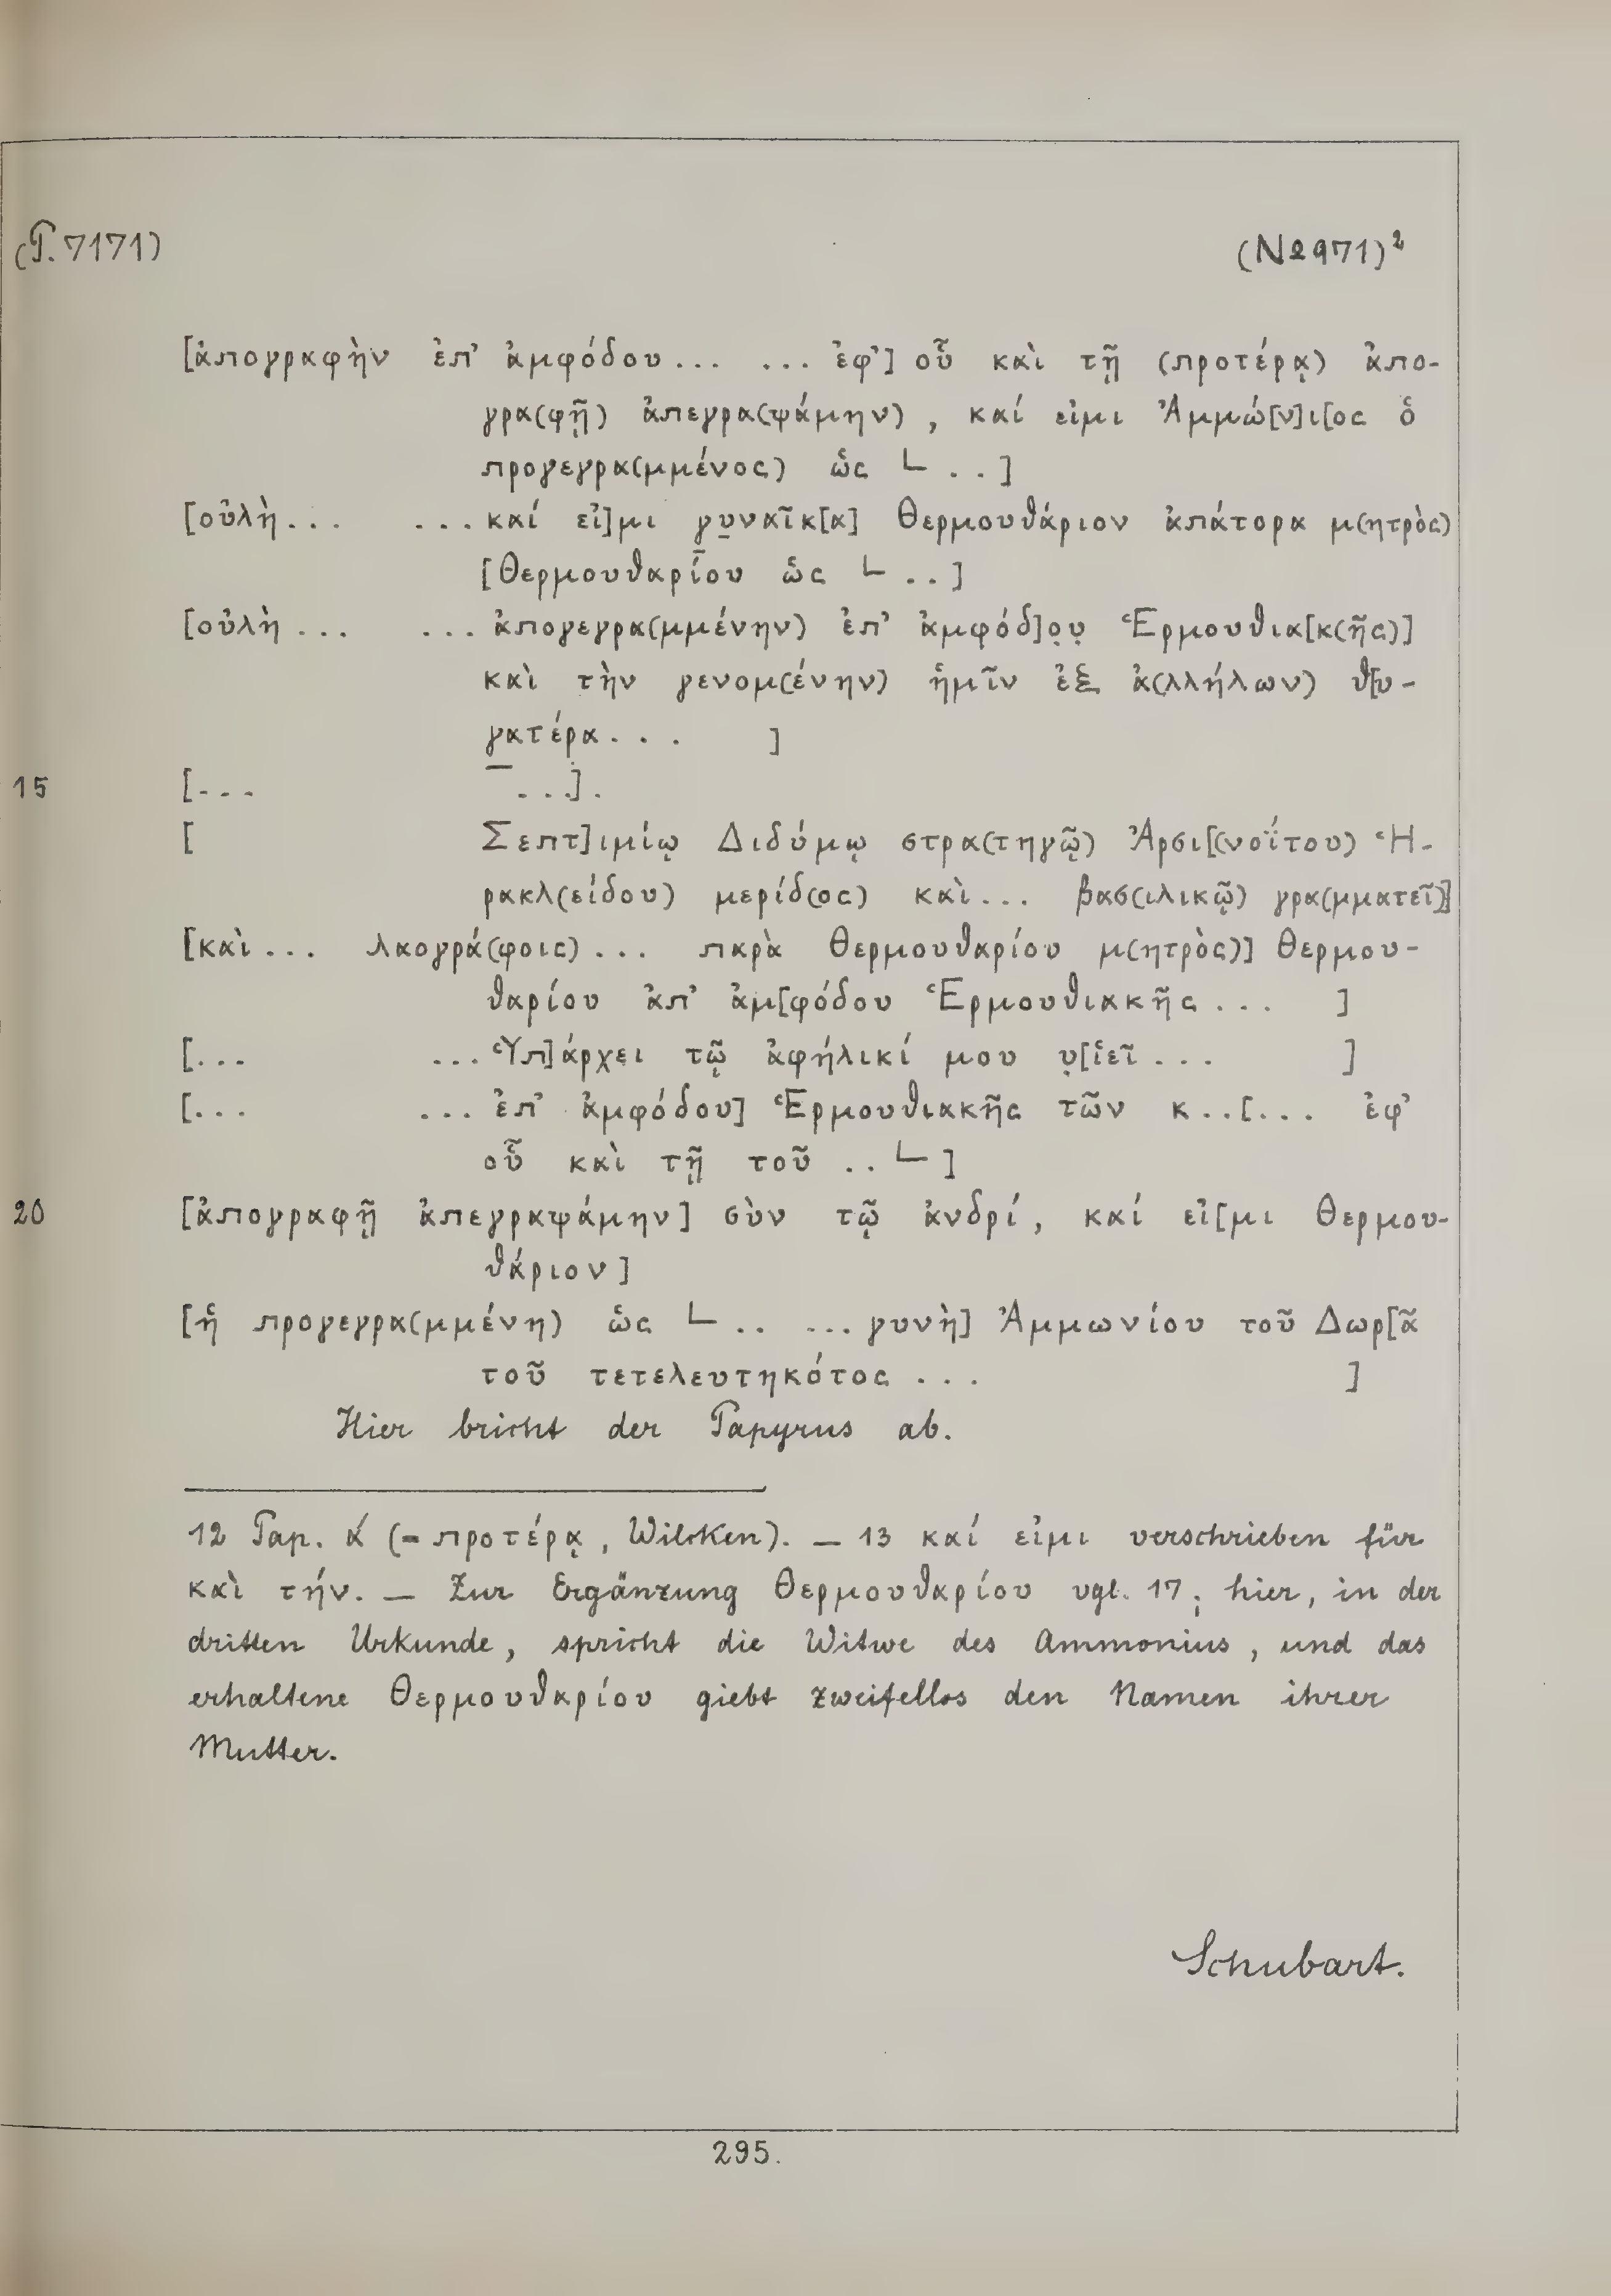 (P. 7171) (No 971)²
[ἀπογραφὴν ἐπ’ ἀμφόδου... ...ἐφ’] οὗ καὶ τῇ (προτέρᾳ) ἀπο-
γρα(φῇ) ἀπεγρα(ψάμην), καί εἰμι Ἀμμώ[ν]ι[ος ὁ
προγεγρα(μμένος) ὡς ∟ ..]
[οὐλὴ... ...καί εἰ]μι γυναῖκ[α] Θερμουθάριον ἀπάτορα μ(ητρὸς)
[Θερμουθαρίου ὡς ∟ ..]
[οὐλὴ... ...ἀπογεγρα(μμένην) ἐπ’ ἀμφόδ]ο̣υ̣ Ἑρμουθια[κ(ῆς)]
καὶ τὴν γενομ(ένην) ἡμῖν ἐξ ἀ(λλήλων) θ[υ-
γατέρα... ]
15 [... ...].
[ Σεπτ]ιμίῳ Διδύμῳ στρα(τηγῷ) Ἀρσι[(νοΐτου) Ἡ-
ρακλ(είδου) μερίδ(ος) καὶ... βασ(ιλικῷ) γρα(μματεῖ)]
[καὶ... λαογρά(φοις)... παρὰ Θερμουθαρίου μ(ητρὸς)] Θερμου-
θαρίου ἀπ’ ἀμ[φόδου Ἑρμουθιακῆς... ]
[... ...Ὑπ]άρχει τῷ ἀφήλικί μου υ̣[ἱεῖ... ]
[... ...ἐπ’ ἀμφόδου] Ἑρμουθιακῆς τῶν κ..[... ἐφ’
οὗ καὶ τῇ τοῦ .. ∟]
20 [ἀπογραφῇ ἀπεγραψάμην] σὺν τῷ ἀνδρί, καί εἰ[μι Θερμου-
θάριον]
[ἡ προγεγρα(μμένη) ὡς ∟ .. ...γυνὴ] Ἀμμωνίου τοῦ Δωρ[ᾶ
τοῦ τετελευτηκότος... ]
Hier bricht der Papyrus ab.
12 Pap. α´ (= προτέρᾳ, Wilcken). — 13 καί εἰμι verschrieben für
καὶ τήν. — Zur Ergänzung Θερμουθαρίου vgl. 17; hier, in der
dritten Urkunde, spricht die Witwe des Ammonius, und das
erhaltene Θερμουθαρίου giebt zweifellos den Namen ihrer
Mutter.
Schubart.
295.